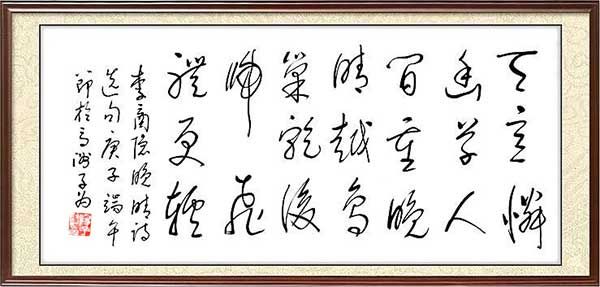 天意憐
幽草人
間重晚
晴越鳥
巢乾後
歸飛
體更輕
李商隱晚晴詩
選句庚子端午
節於